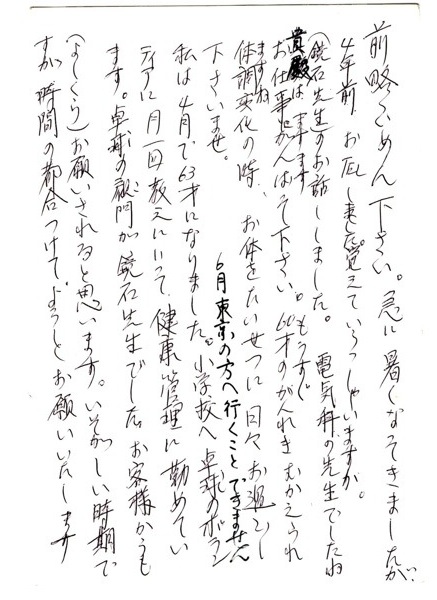 前略ごめん下さい。急に暑くなってきましたが、
4年前、お伝しました。覚えていらっしゃいますか。
(鏡石先生)のお話ししました。電気科の先生でしたね
貴殿はますます
お仕事がんばって下さい。もうすぐ60才のがんれきむかえられ
ますね
体調変化の時、お体をたいせつに日々お過ごし
下さいませ。
6月東京の方へ行くことできません
私は4月で63才になりました。小学校へ卓球のボラン
ティアに月一回教えにいって、健康管理に勤めてい
ます。卓球の顧問が鏡石先生でした。お客様からも
(よしくら)お願いされると思います。いそがしい時期で
すが時間の都合つけてどうぞとお願いいたします